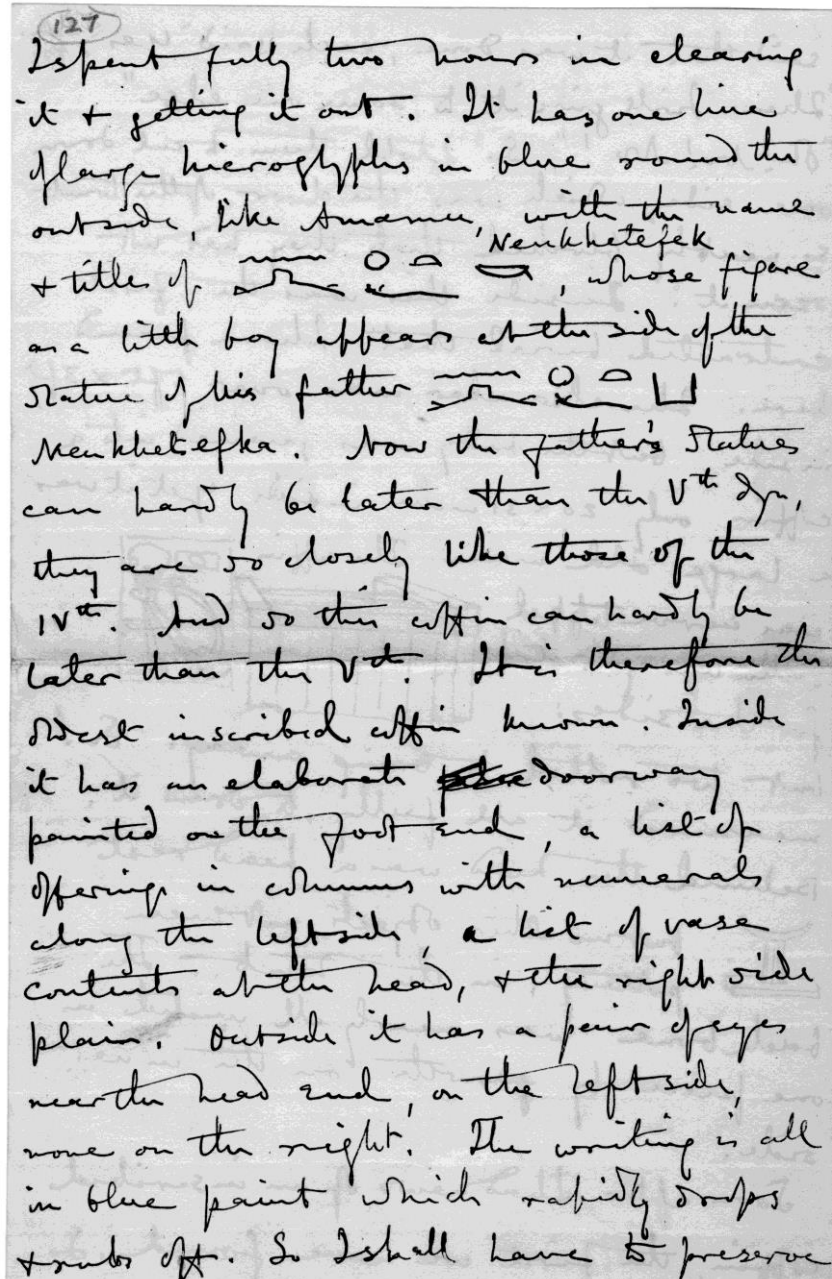 127
I spent fully two hours in clearing
it & getting it out. It has one line
of large hieroglyphs in blue round the
outside, like Amamu, with the name
Nenkhetefek
& titles of , whose figure
as a little boy appears at the side of the
statue of his father
Nenkhetefka. Now the father's statues
can hardly be later than the Vth Dyn,
they are so closely like those of the
IVth. And so this coffin can hardly be
later than the Vth. It is therefore the
oldest inscribed coffin known. Inside
it has an elaborate doorway
painted on the foot end, a list of
offerings in columns with numerals
along the left side, a list of vase
contents at the head, & the right side
plain. Outside it has a pair of eyes
near the head end, on the left side,
none on the right. The writing is all
in blue paint which rapidly drops
& rubs off. So I shall have to preserve